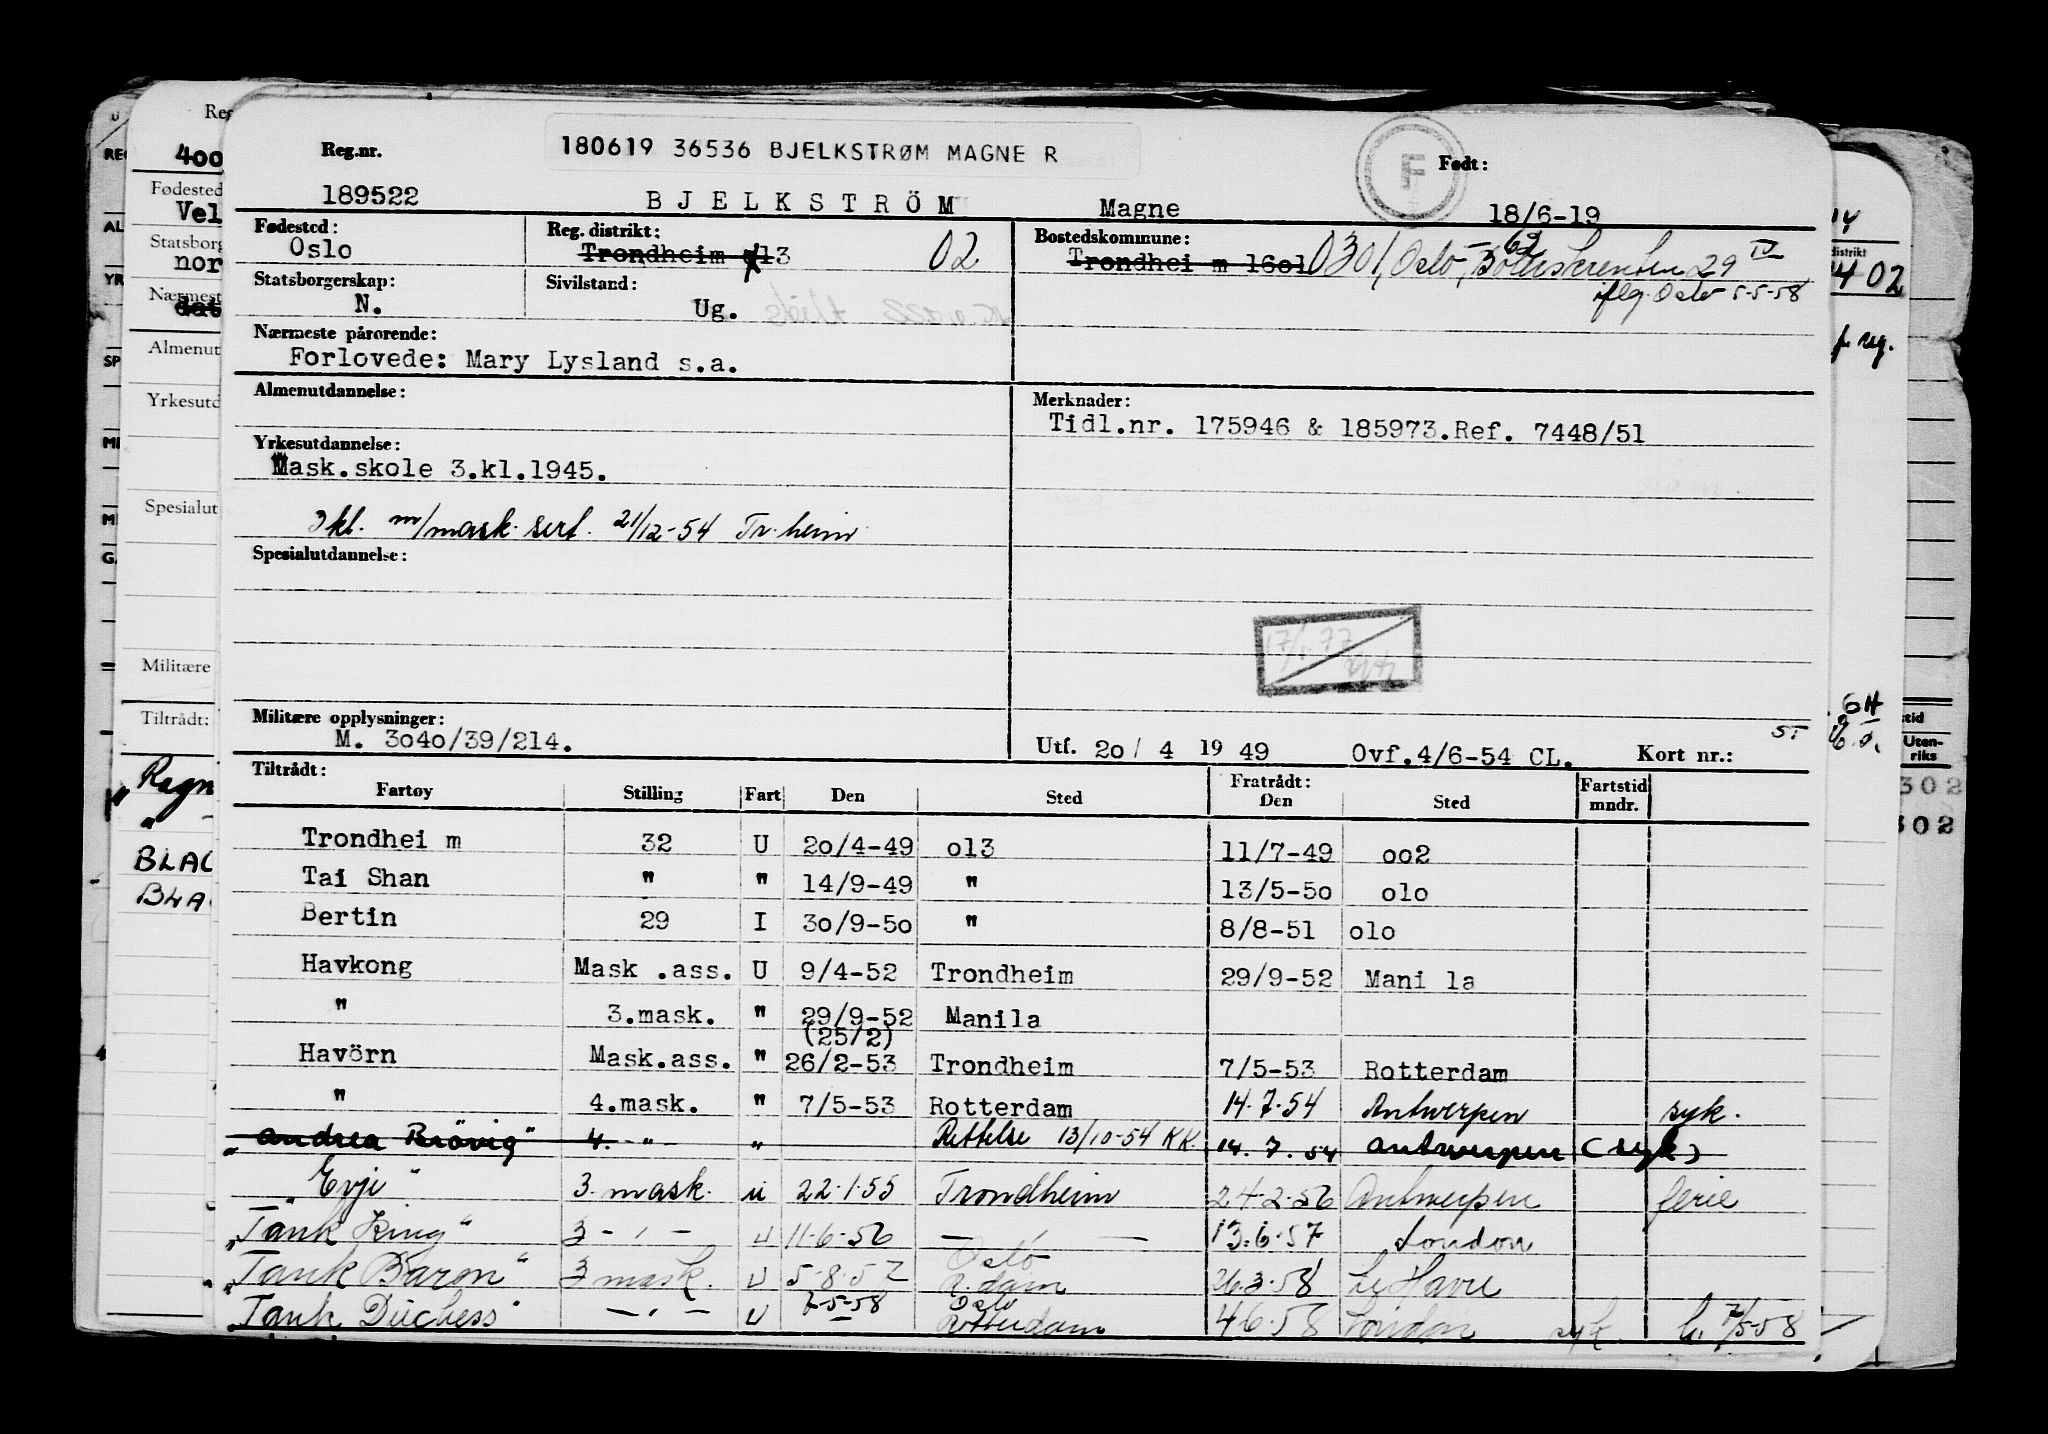 180619 36536 BJELKSTRØM MAGNE R
Reg.nr.
F
Født:
189522 BJELKSTRÖM Magne 18/6-19
Fødested: Oslo
Reg. distrikt: Trondheim 013 02
Bostedskommune: Trondhei m 16o1 0301, Oslo, 29 IV
62
flg. Oslo 5-5-58
Statsborgerskap: N.
Sivilstand: Ug.
Nærmeste pårørende:
Forlovede: Mary Lysland s.a.
Almenutdannelse:
Merknader:
Tidl.nr. 175946 & 185973.Ref. 7448/51
Yrkesutdannelse:
Mask.skole 3.kl.1945.
3 kl. m/mask. sert. 21/12-54 Tr.heim
Spesialutdannelse:
Militære opplysninger:
M. 3o4o/39/214.
Utf. 2o/ 4 19 49 Ovf.4/6-54 CL. Kort nr.:
ST
Tiltrådt: Fratrådt:
Fartøy Stilling Fart Den Sted Den Sted Fartstid mndr.
Trondhei m 32 U 2o/4-49 o13 11/7-49 oo2
Tai Shan " " 14/9-49 " 13/5-5o o1o
Bertin 29 I 3o/9-5o " 8/8-51 o1o
Havkong Mask .ass. U 9/4-52 Trondheim 29/9-52 Mani la
" 3.mask. " 29/9-52 Manila
(25/2)
Havörn Mask.ass. " 26/2-53 Trondheim 7/5-53 Rotterdam
" 4.mask. " 7/5-53 Rotterdam 14.7.54 Antwerpen syk.
"Andrea Brövig" 4. -"- " Rettelse 13/10-54 KK. 14.7.54 Antwerpen (syk)
"Evje" 3. mask. u 22.1.55 Trondheim 24.2.56 Antwerpen ferie
"Tank King" 3 - " - U 11.6.56 — " — 13.6.57 London
"Tank Baron" 3 mask. U 5.8.57 Oslo R.dam 26.3.58 Le Havre
"Tank Duchess" — " — U 7-5-58 Oslo Rotterdam 4.6.58 London syk. 7/5-58
Reg
400
Fødested
Vel
Statsborg
nor
Nærmest
Almenut
Yrkesutd
Spesialut
Militære
Tiltrådt:
"Ragn
BLAC
BLA
distrikt
02
Uten-
riks
302
302